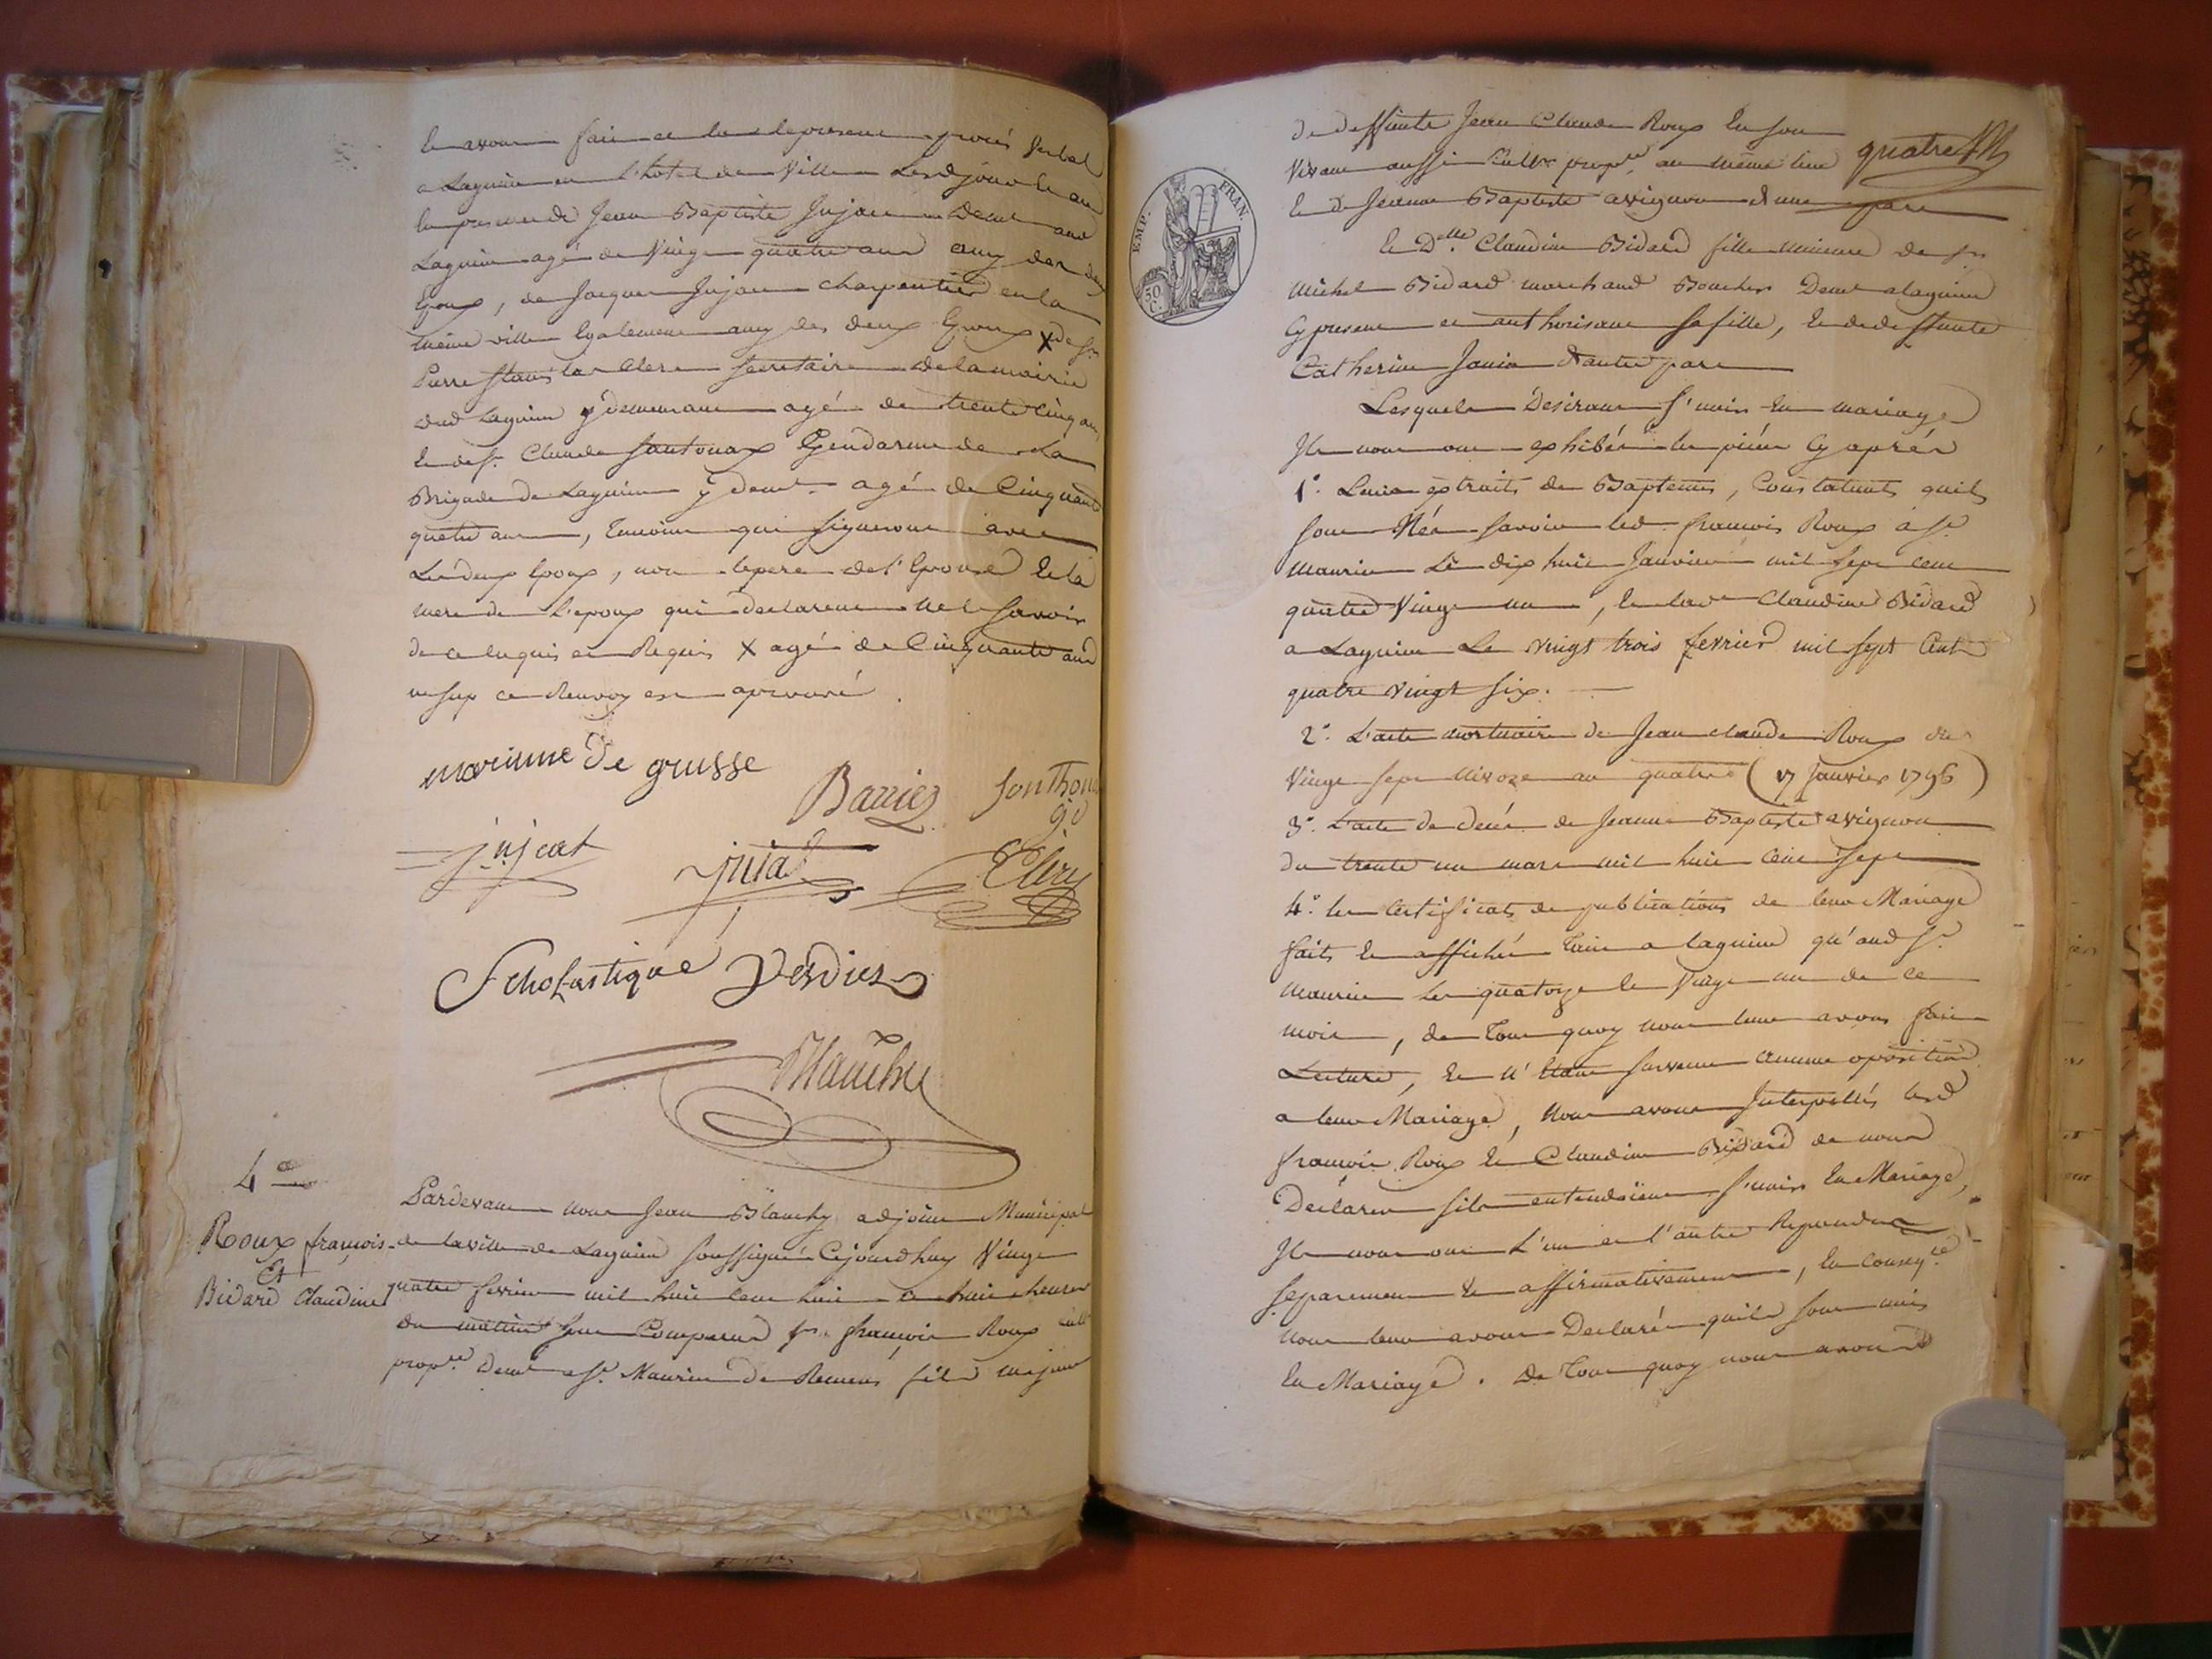 Et avons fait et clos le present procès verbal
a Lagnieu en l'hotel de Ville Lesd jour et an
En presence de Jean Baptiste Jujat Demt aud
Lagnieu agé de Vingt quatre ans amy des deux
Epoux, de Jacques Jujat charpentier en la
même ville Egalement amy des deux Epoux X de sr
Pierre Clerc secretaire de la mairie
dud Lagnieu y demeurant agé de trente cinq ans,
Et de sr. Claude Santonax Gendarme de La
Brigade de Lagnieu y demt agé de Cinquante
quatre ans, temoins qui signeront avec
Les deux Epoux, non le pere de l'Epouse Et la
mere de L'epoux qui declarent ne le savoir
de ce enquis et Requis X agé de Cinquante ans
ce Renvoy est aprouvé.
marinne De grusse
Barrier
Sonthona
gd
jujat
jujat
Clerc
Scholastique Verdier
Blanchy
4e
Roux françois
Et
Bidard Claudine
Pardevant nous Jean Blanchy adjoint Municipal
de la ville de Lagnieu soussigné Cejourd'huy Vingt
quatre fevrier mil huit cent huit a huit heures
du mattin sont Comparus sr. françois Roux cultr
proprre Demt a St Maurice de Remens fils majeur
EMP. FRAN.
50 C.
de deffunte Jean Claude Roux En son
Vivant aussi Cultr proprre au même lieu
quatre
Et de Jeanne Baptiste avignon d'une part
Et Delle. Claudine Bidard fille mineure de sr
Michel Bidard marchand Boucher Demt a Lagnieu
Cy present et authorisant sa fille, Et de deffunte
Catherine Janin d'autre part
Lesquels Desirant s'unir En mariage
Ils nous ont exhibés les pièces Cy après
1°. Leurs extraits de Baptemes, Constatants quils
sont Nés savoir led françois Roux à St
Maurice Le dix huit Janvier mil sept cent
quatre Vingt un, Et lade Claudine Bidard
a Lagnieu Le vingt trois fevrier mil sept Cent
quatre vingt six.
2°. L'acte mortuaire de Jean claude Roux du
Vingt sept Nivoze an quatre (17 Janvier 1796)
3°. L'acte de décés de Jeanne Baptiste avignon
du trente un mars mil huit cent sept
4°. les Certificats de publications de leur Mariage
faits Et affichés tant a Lagnieu qu'aud St
Maurice Les quatorze Et Vingt un de ce
mois, de tout quoy nous leur avons fait
Lecture, Et n'étant survenu aucune oposition
a leur Mariage, Nous avons Interpellés lesd
françois Roux Et Claudine Bidard de nous
Déclarer s'ils entendoient s'unir En Mariage,
Ils nous ont L'un et l'autre Repondu
separement & affirmativement, En Conseqce
Nous leur avons Declarés quils sont unis
En Mariage. De tout quoy nous avons